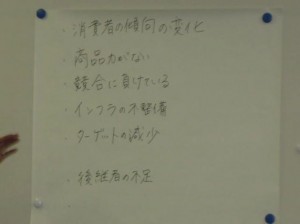 ・消費者の傾向の変化
・商品力がない
・競合に負けている
・インフラの不整備
・ターゲットの減少
・後継者の不足
・